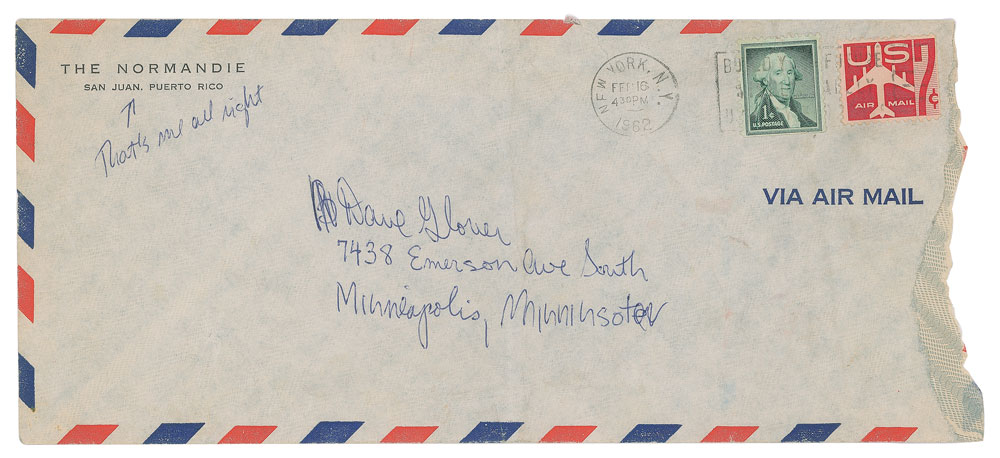 THE NORMANDIE
SAN JUAN, PUERTO RICO
That's me all right
NEW YORK, N.Y.
FEB 16
430PM
1962
1¢
U.S. POSTAGE
US
7¢
AIR MAIL
VIA AIR MAIL
Dave Glover
7438 Emerson Ave South
Minneapolis, Minninsoter